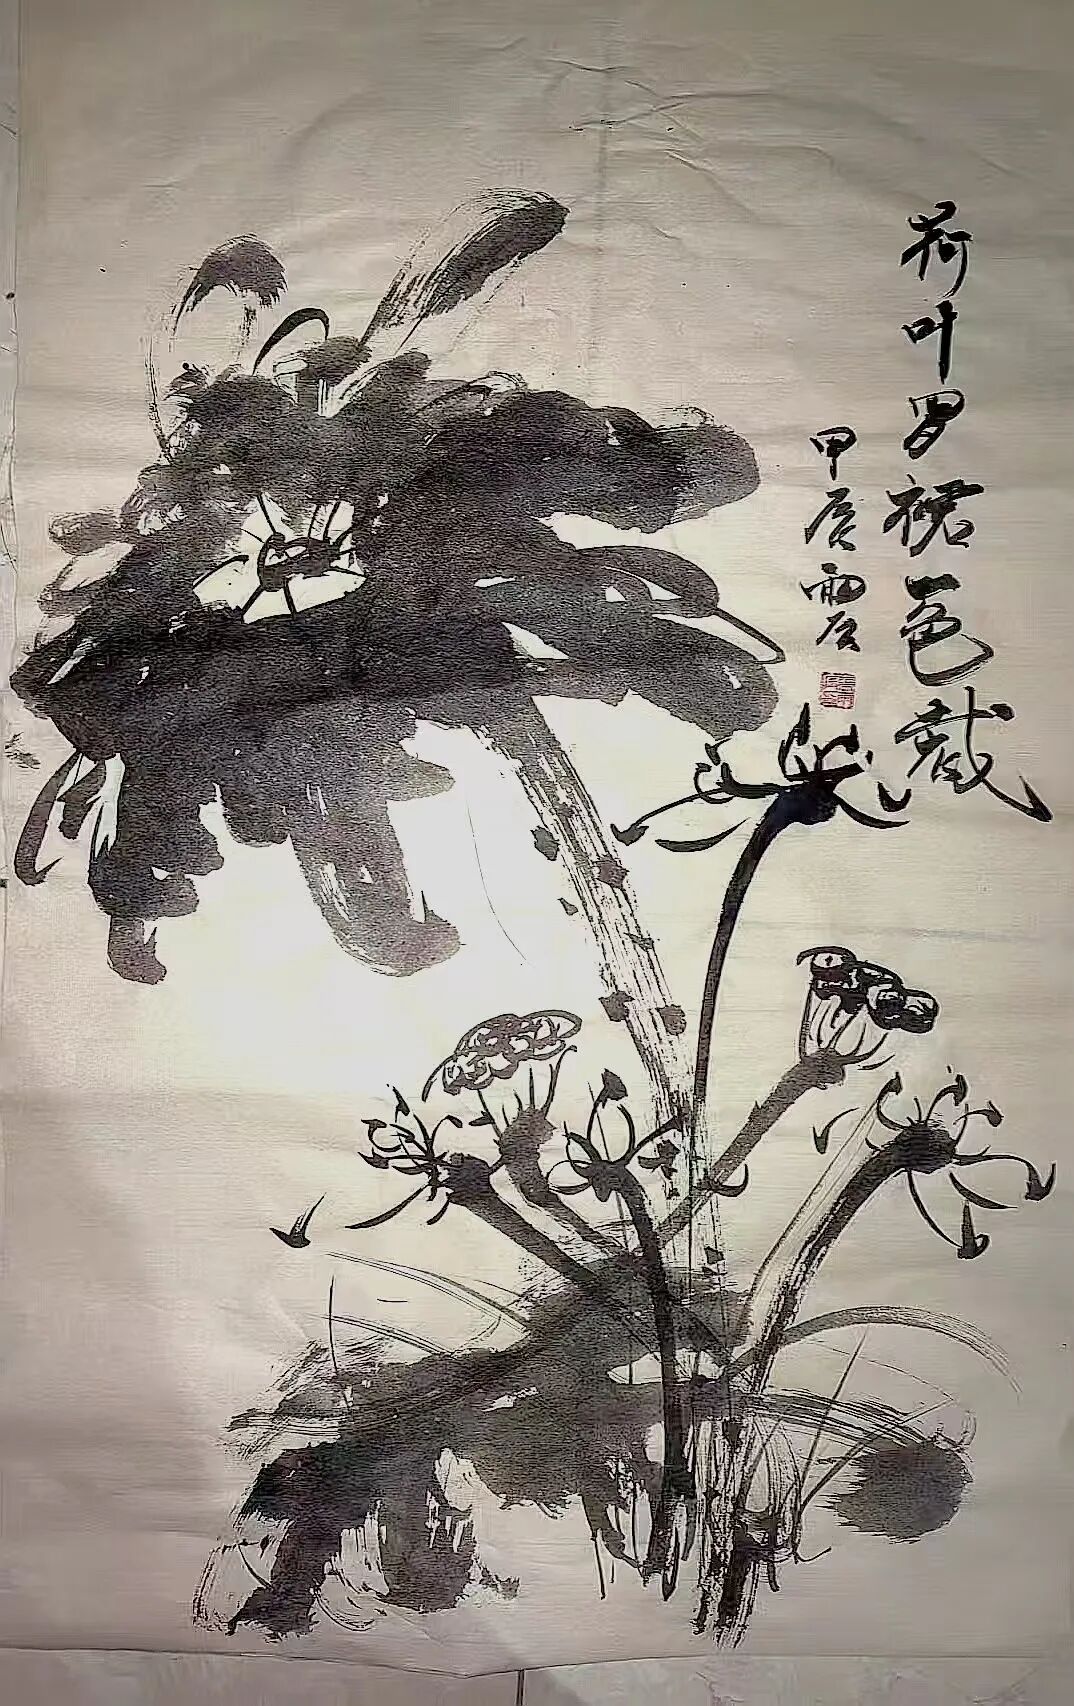 荷叶罗裙一色裁
甲辰震